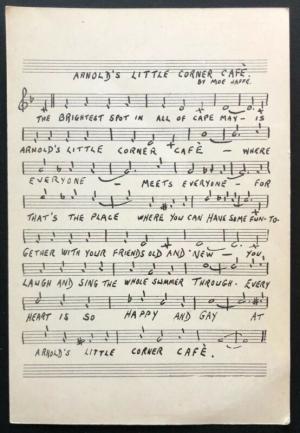 ARNOLD'S LITTLE CORNER CAFÈ.
BY MOE JAFFE.
THE BRIGHTEST SPOT IN ALL OF CAPE MAY – IS
ARNOLD'S LITTLE CORNER CAFÈ – WHERE
EVERYONE – MEETS EVERYONE – FOR
THAT'S THE PLACE WHERE YOU CAN HAVE SOME FUN-TO-
GETHER WITH YOUR FRIENDS OLD AND NEW – YOU
LAUGH AND SING THE WHOLE SUMMER THROUGH. EVERY
HEART IS SO HAPPY AND GAY AT
ARNOLD'S LITTLE CORNER CAFÈ.